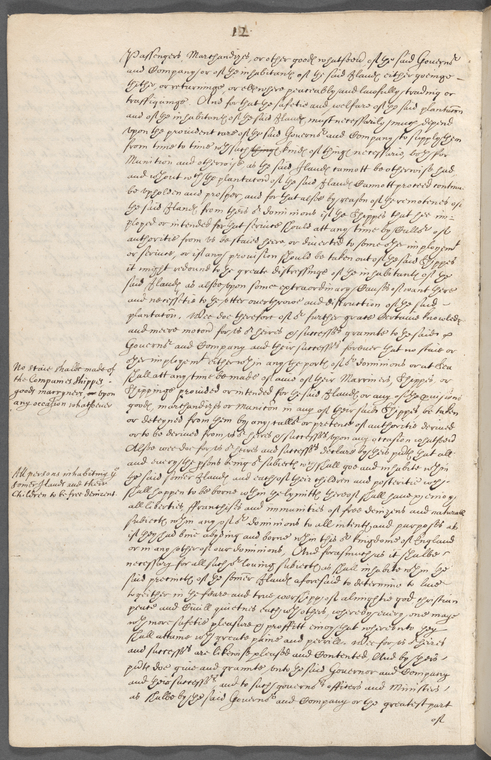 12
Passengers Marchandyse, or other goods whatsoever of the said Governor
and Company or of the inhabitants of the said Ilands either goeinge
thither, or returninge or elcwhere peaceably and lawfully trading or
traffiquinge. And for that the safetie and welfare of the said plantation
and of the inhabitants of the said Ilands must necessarily much depend
upon the provident care of the said Governor and Company to supply them
from time to time with such kinds of things necessarie both for
Munition and otherwise as the said Ilands cannot be otherwise had
and without which the plantation of the said Ilands Cannott proceed continue
be upholden and prosper, and for that alsoe by reason of the remotenes of
the said Ilands from theis our dominions if the Shippes that bee im-
ployed or intended for that service should att any time by Cullor of
authoritie from us be staied here or diverted to some other imployment
or service, or if any provision should be taken out of the said Shippes
it might redound to the great distressinge of the inhabitants of the
said Ilands as alsoe upon some extraordinary Causes of want there
and necessitie to the utter overthrowe and distruction of the said
plantation. Wee doe therefore of our further grace Certaine knowledge
and meere motion for us our heires & successors graunte to the said
Governor and Company and their successors forever that no staie or
other imployment either within any the ports of our dominions or at Sea
shall att any time be made of anie of their Marriners, Shippes, or
Shippinge provided or intended for the said Ilands, or any of the provisions
goods marchandize or Muniton in any of their said Shippes, be taken
or deteyned from them by any cullor or pretence of authoritie derived
or to be derived from us our heires & successors upon any occasion whatsoever
Alsoe wee doe for us our heires and successors declare by theis presents that all
and every the persons being our subiects which shall goe and inhabite within
the said Somer Ilands and each of their children and posteritie which
shall happen to be borne within the lymitts thereof shall have and enioy
all liberties ffranchises and immunities of free denizens and naturall
subiects within any of our dominions to all intents and purposes as
if they had bine abiding and borne within this our kingdome of England
or in any other of our dominions, And forasmuch as it shalbe
necessary for all such our loving subiects as shall inhabite within the
said precincts of the Somer Ilands aforesaid to determine to live
together in the feare and true worshipp of almighty god christian
peace and Civill quietnes each with other, whereby every one may
with more safetie pleasure & proffitt enioy that whereunto they
shall attaine with greate paine and perrill, wee for us our heires
and successors are likewise pleased and Contented, And by theis
presents doe give and graunte unto the said Governor and Company
and their successors, and to such governors officers and Ministers
as shalbe by the said Governor and Company or the greatest part
of
No staie shalbe made of
the Companies Shippes
goods marryners, upon
any occasion whatsoever
All persons inhabiting ye
Somer Ilands and their
Children to be free denizens